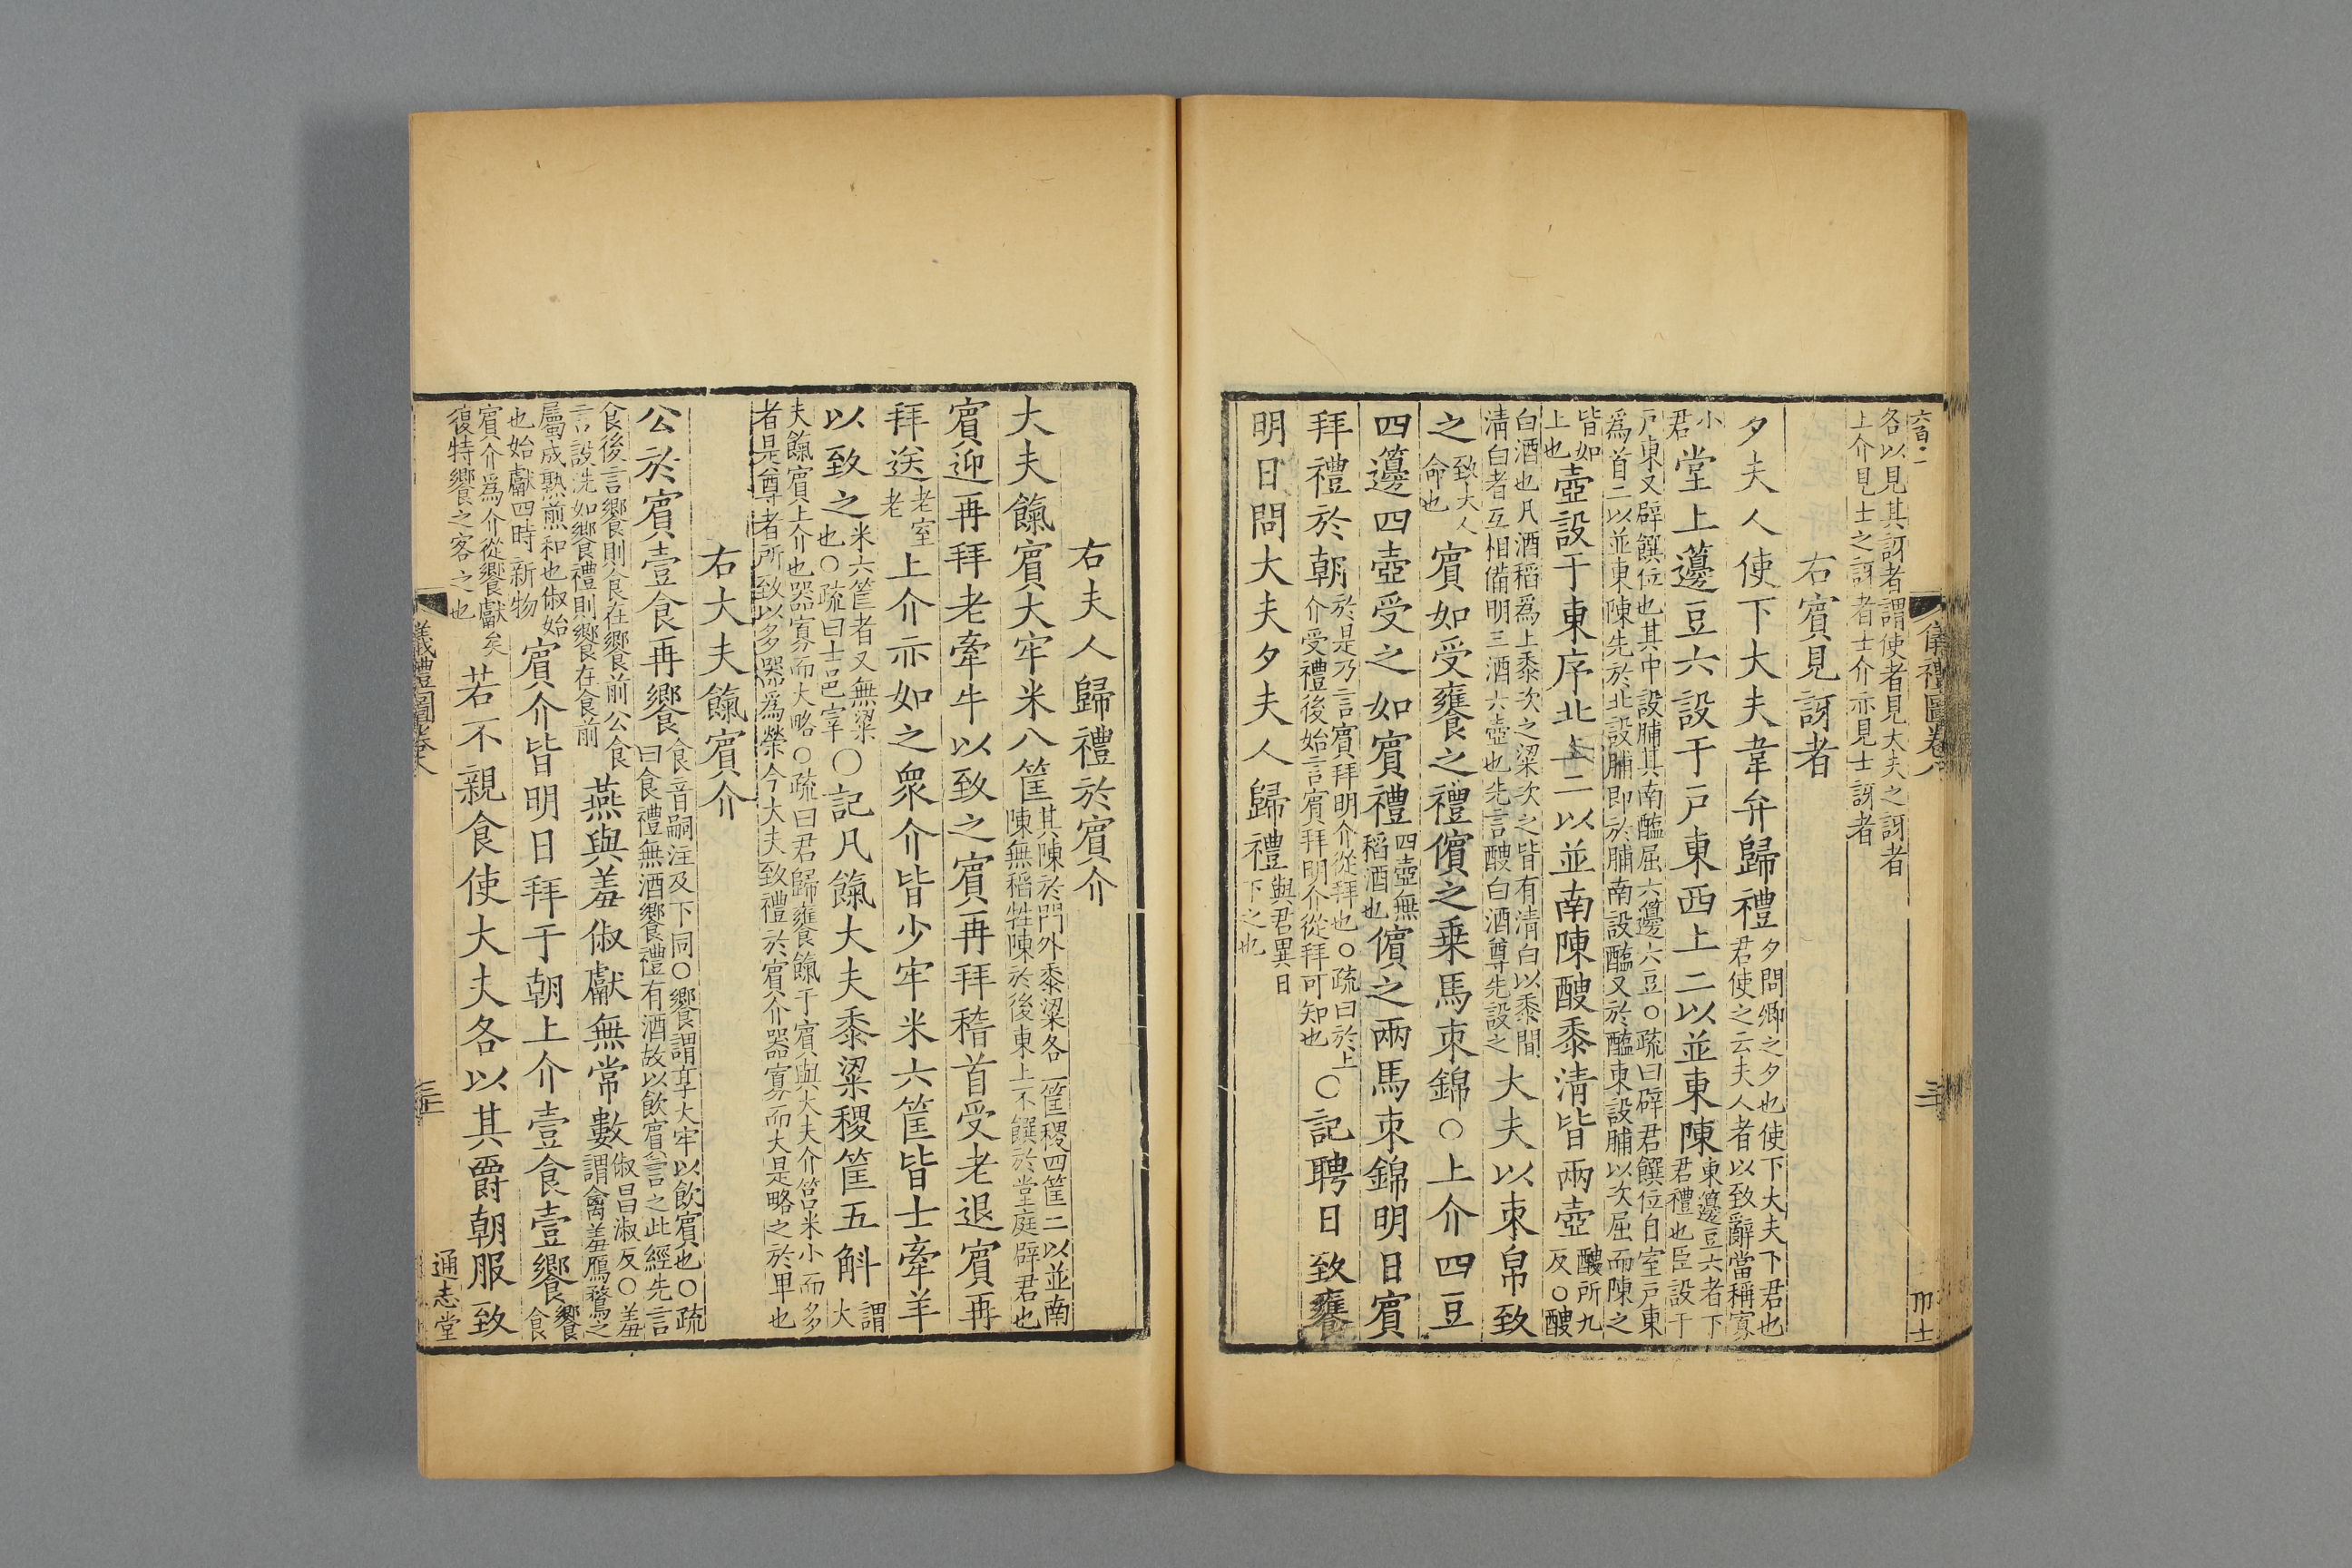 各以見其訝者謂使者見大夫之訝者
上介見士之訝者士介亦見士訝者
右賓見訝者
夕夫人使下大夫韋弁歸禮夕問卿之夕也使下大夫下君也君使之云夫人者以致辭當稱寡
小君堂上籩豆六設于戸東西上二以並東陳東籩豆六者下君禮也臣設于
戸東又辟饌位也其中設脯其南醢屈六籩六豆○疏曰辟君饌位自室戸東
爲首二以並東陳先於北設脯即於脯南設醢又於醢東設脯以次屈而陳之
皆如上也壺設于東序北上二以並南陳醙黍清皆兩壺醙所九反○醙
白酒也凡酒稻爲上黍次之粱次之皆有清白以黍間
清白者互相備明三酒六壺也先言醙白酒尊先設之大夫以束帛致
之致夫人命也賓如受饔之禮儐之乗馬束錦○上介四豆
四籩四壺受之如賓禮四壺無稻酒也儐之兩馬束錦明日賓
拜禮於朝於是乃言賓拜明介從拜也○疏曰於上介受禮後始言賓拜明介從拜可知也○記聘日致饔
明日問大夫夕夫人歸禮與君異日下之也
儀禮圖卷八
右夫人歸禮於賓介
大夫餼賓大牢米八筐其陳於門外黍粱各一筐稷四筐二以並南陳無稻牲陳於後東上不饌於堂庭辟君也
賓迎再拜老牽牛以致之賓再拜稽首受老退賓再
拜送老室老上介亦如之衆介皆少牢米六筐皆士牽羊
以致之米六筐者又無粱也○疏曰士邑宰○記凡餼大夫黍粱稷筐五斛謂大
夫餼賓上介也器寡而大略○疏曰君歸饔餼于賓與大夫介筥米小而多
者是尊者所致以多器爲榮今大夫致禮於賓介器寡而大是略之於卑也
右大夫餼賓介
公於賓壹食再饗食音嗣注及下同○饗謂亨大牢以飲賓也○疏曰食禮無酒饗禮有酒故以飲賓言之此經先言
食後言饗則食在饗前公食
言設洗如饗禮則饗在食前燕與羞俶獻無常數俶昌淑反○羞謂禽羞鴈鶩之
屬成熟煎和也俶始
也始獻四時新物賓介皆明日拜于朝上介壹食壹饗饗食
賓介爲介從饗獻矣
復特饗之客之也若不親食使大夫各以其爵朝服致
儀禮圖卷八
通志堂